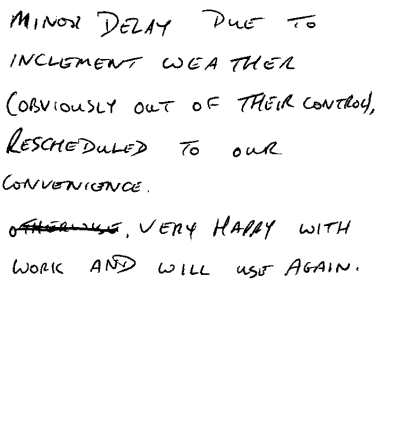 MINOR DELAY DUE TO
INCLEMENT WEATHER
(OBVIOUSLY OUT OF THEIR CONTROL),
RESCHEDULED TO OUR
CONVENIENCE.
OTHERWISE, VERY HAPPY WITH
WORK AND WILL USE AGAIN.